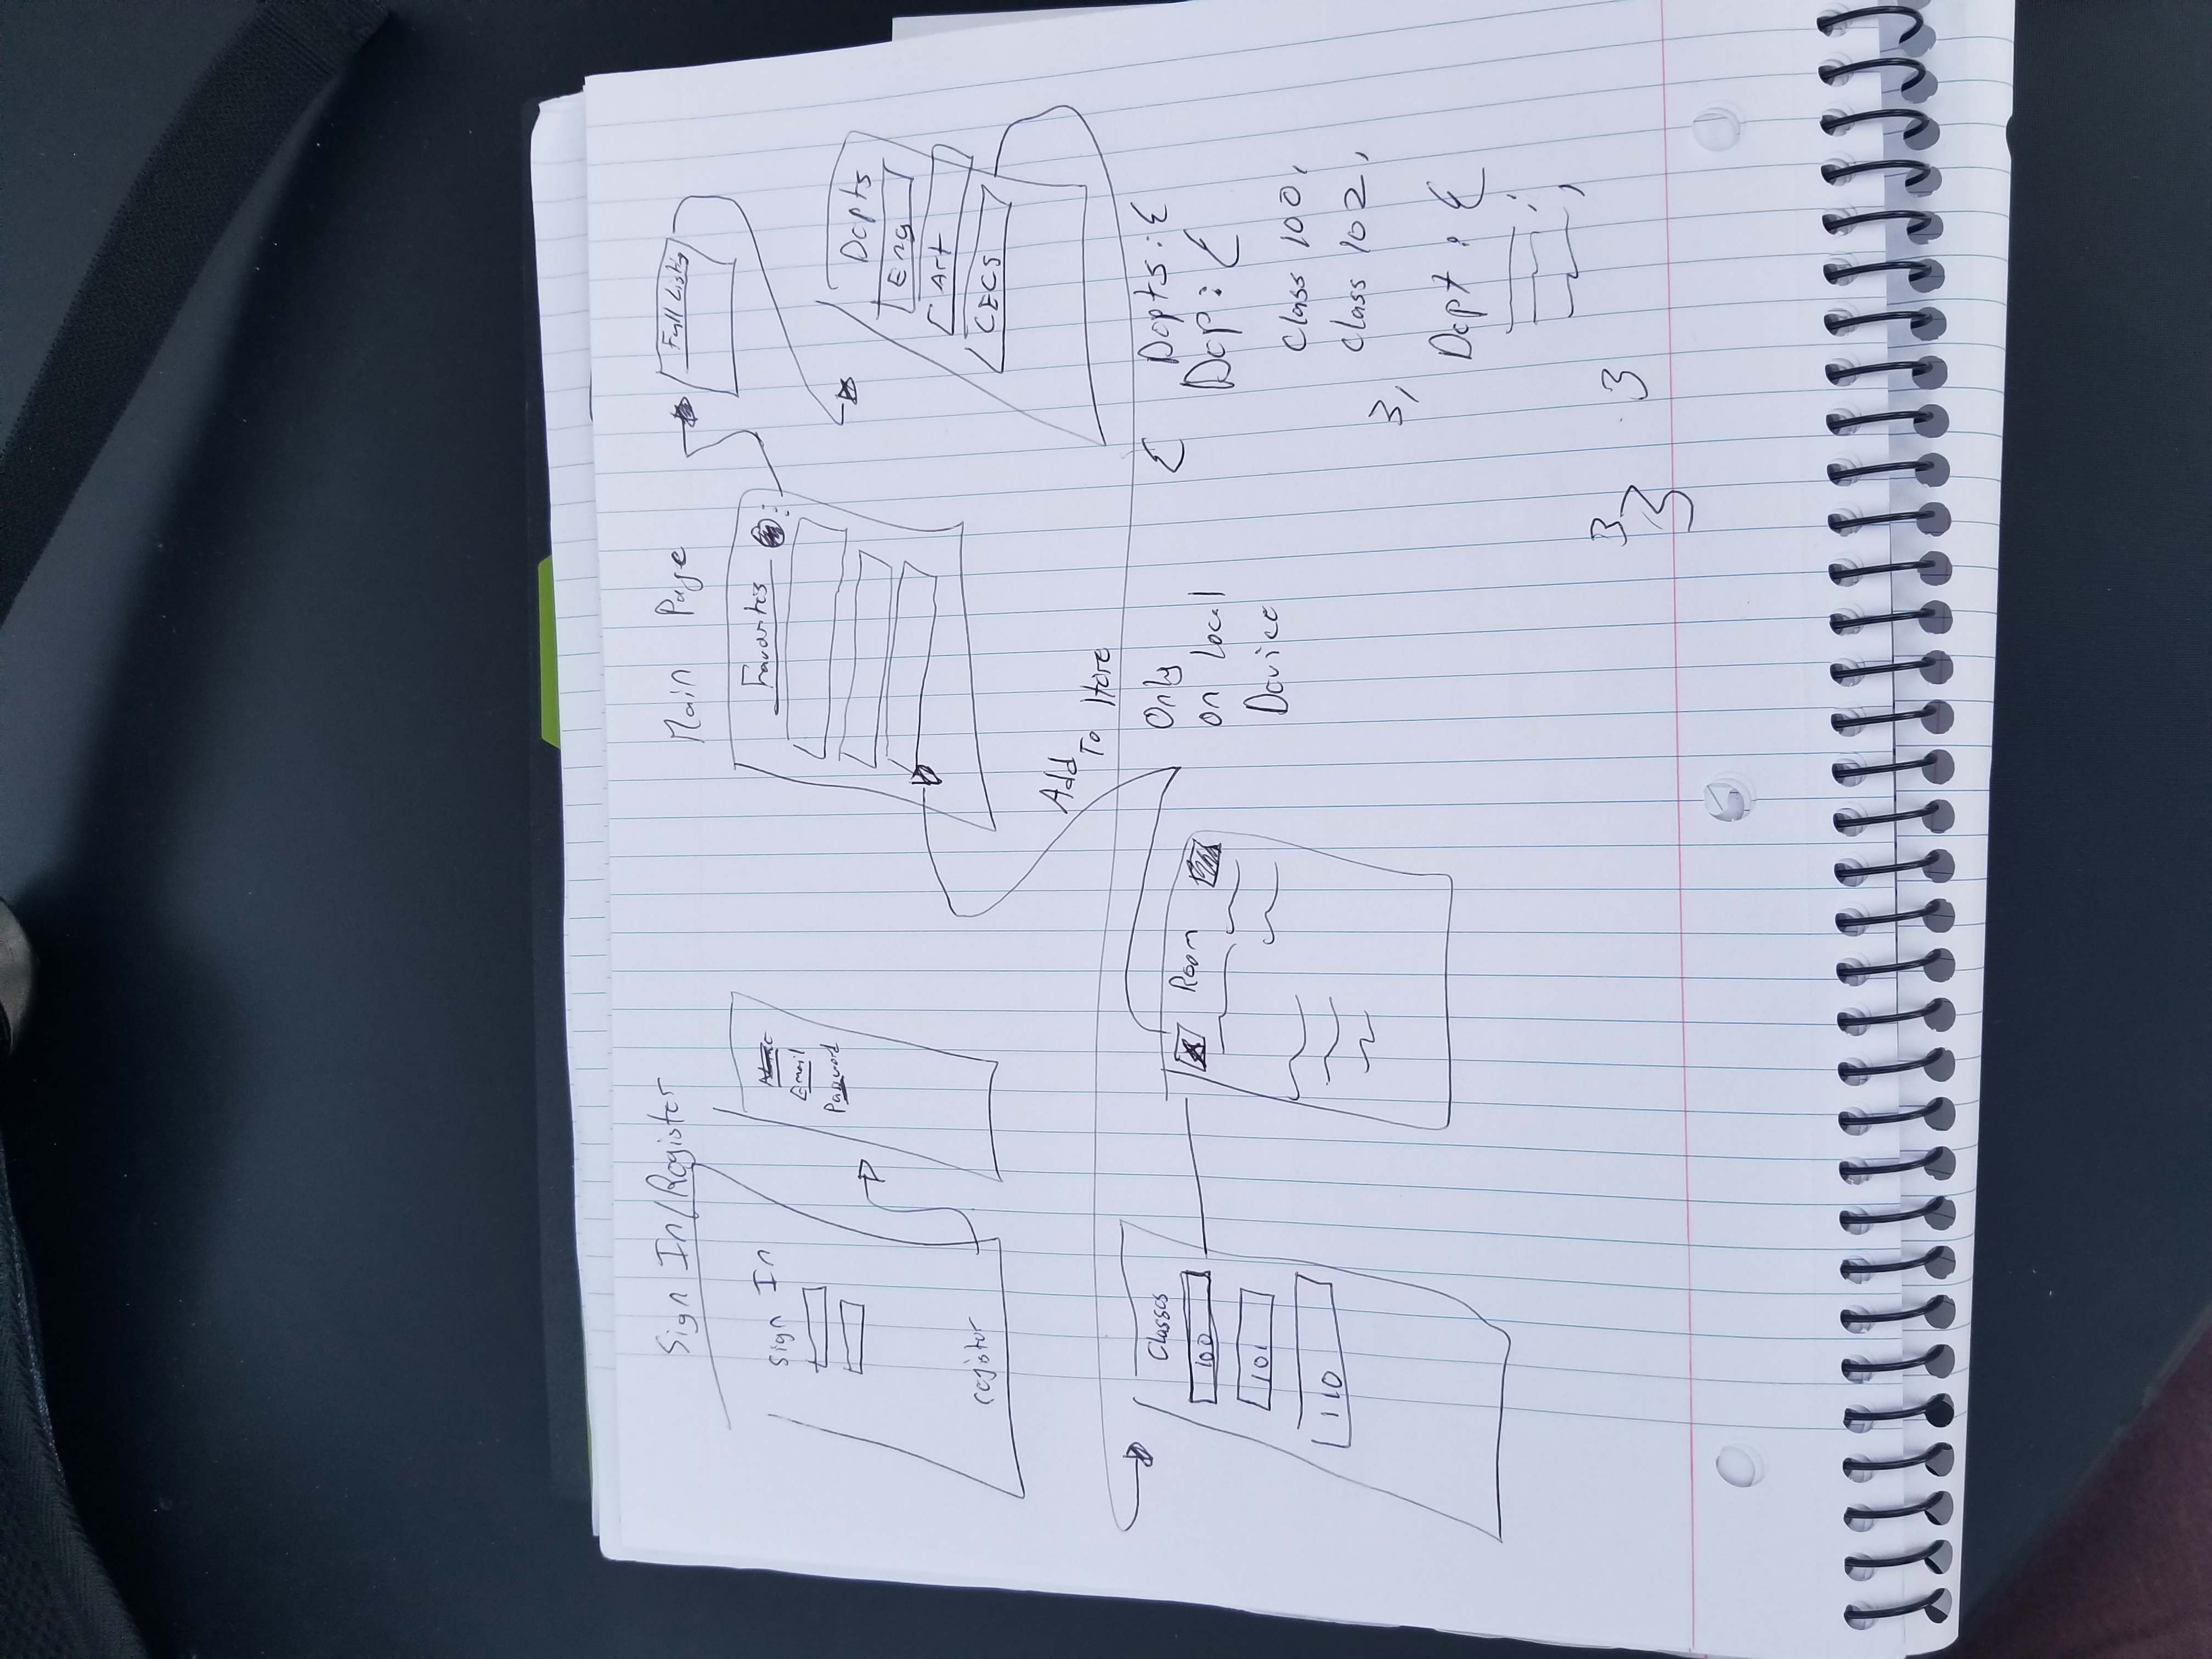 Sign In/Register
Sign In
register
Email
Password
Main Page
Favorites
Full Listing
Depts
Eng
Art
CECS
Add
To Here
Only
on Local
Device
Classes
100
101
110
Room
{ Depts: {
Dep: {
Class 100,
Class 102,
},
Dept : {
}
}
}